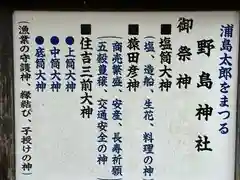 浦島太郎をまつる
野島神社
御祭神
■塩筒大神
(塩、造船、生花、料理の神)
■猿田彦神
商売繁盛、安産、長寿祈願
五穀豊穣、交通安全の神
■住吉三前大神
●上筒大神
●中筒大神
●底筒大神
(漁業の守護神 縁結び、子授けの神)